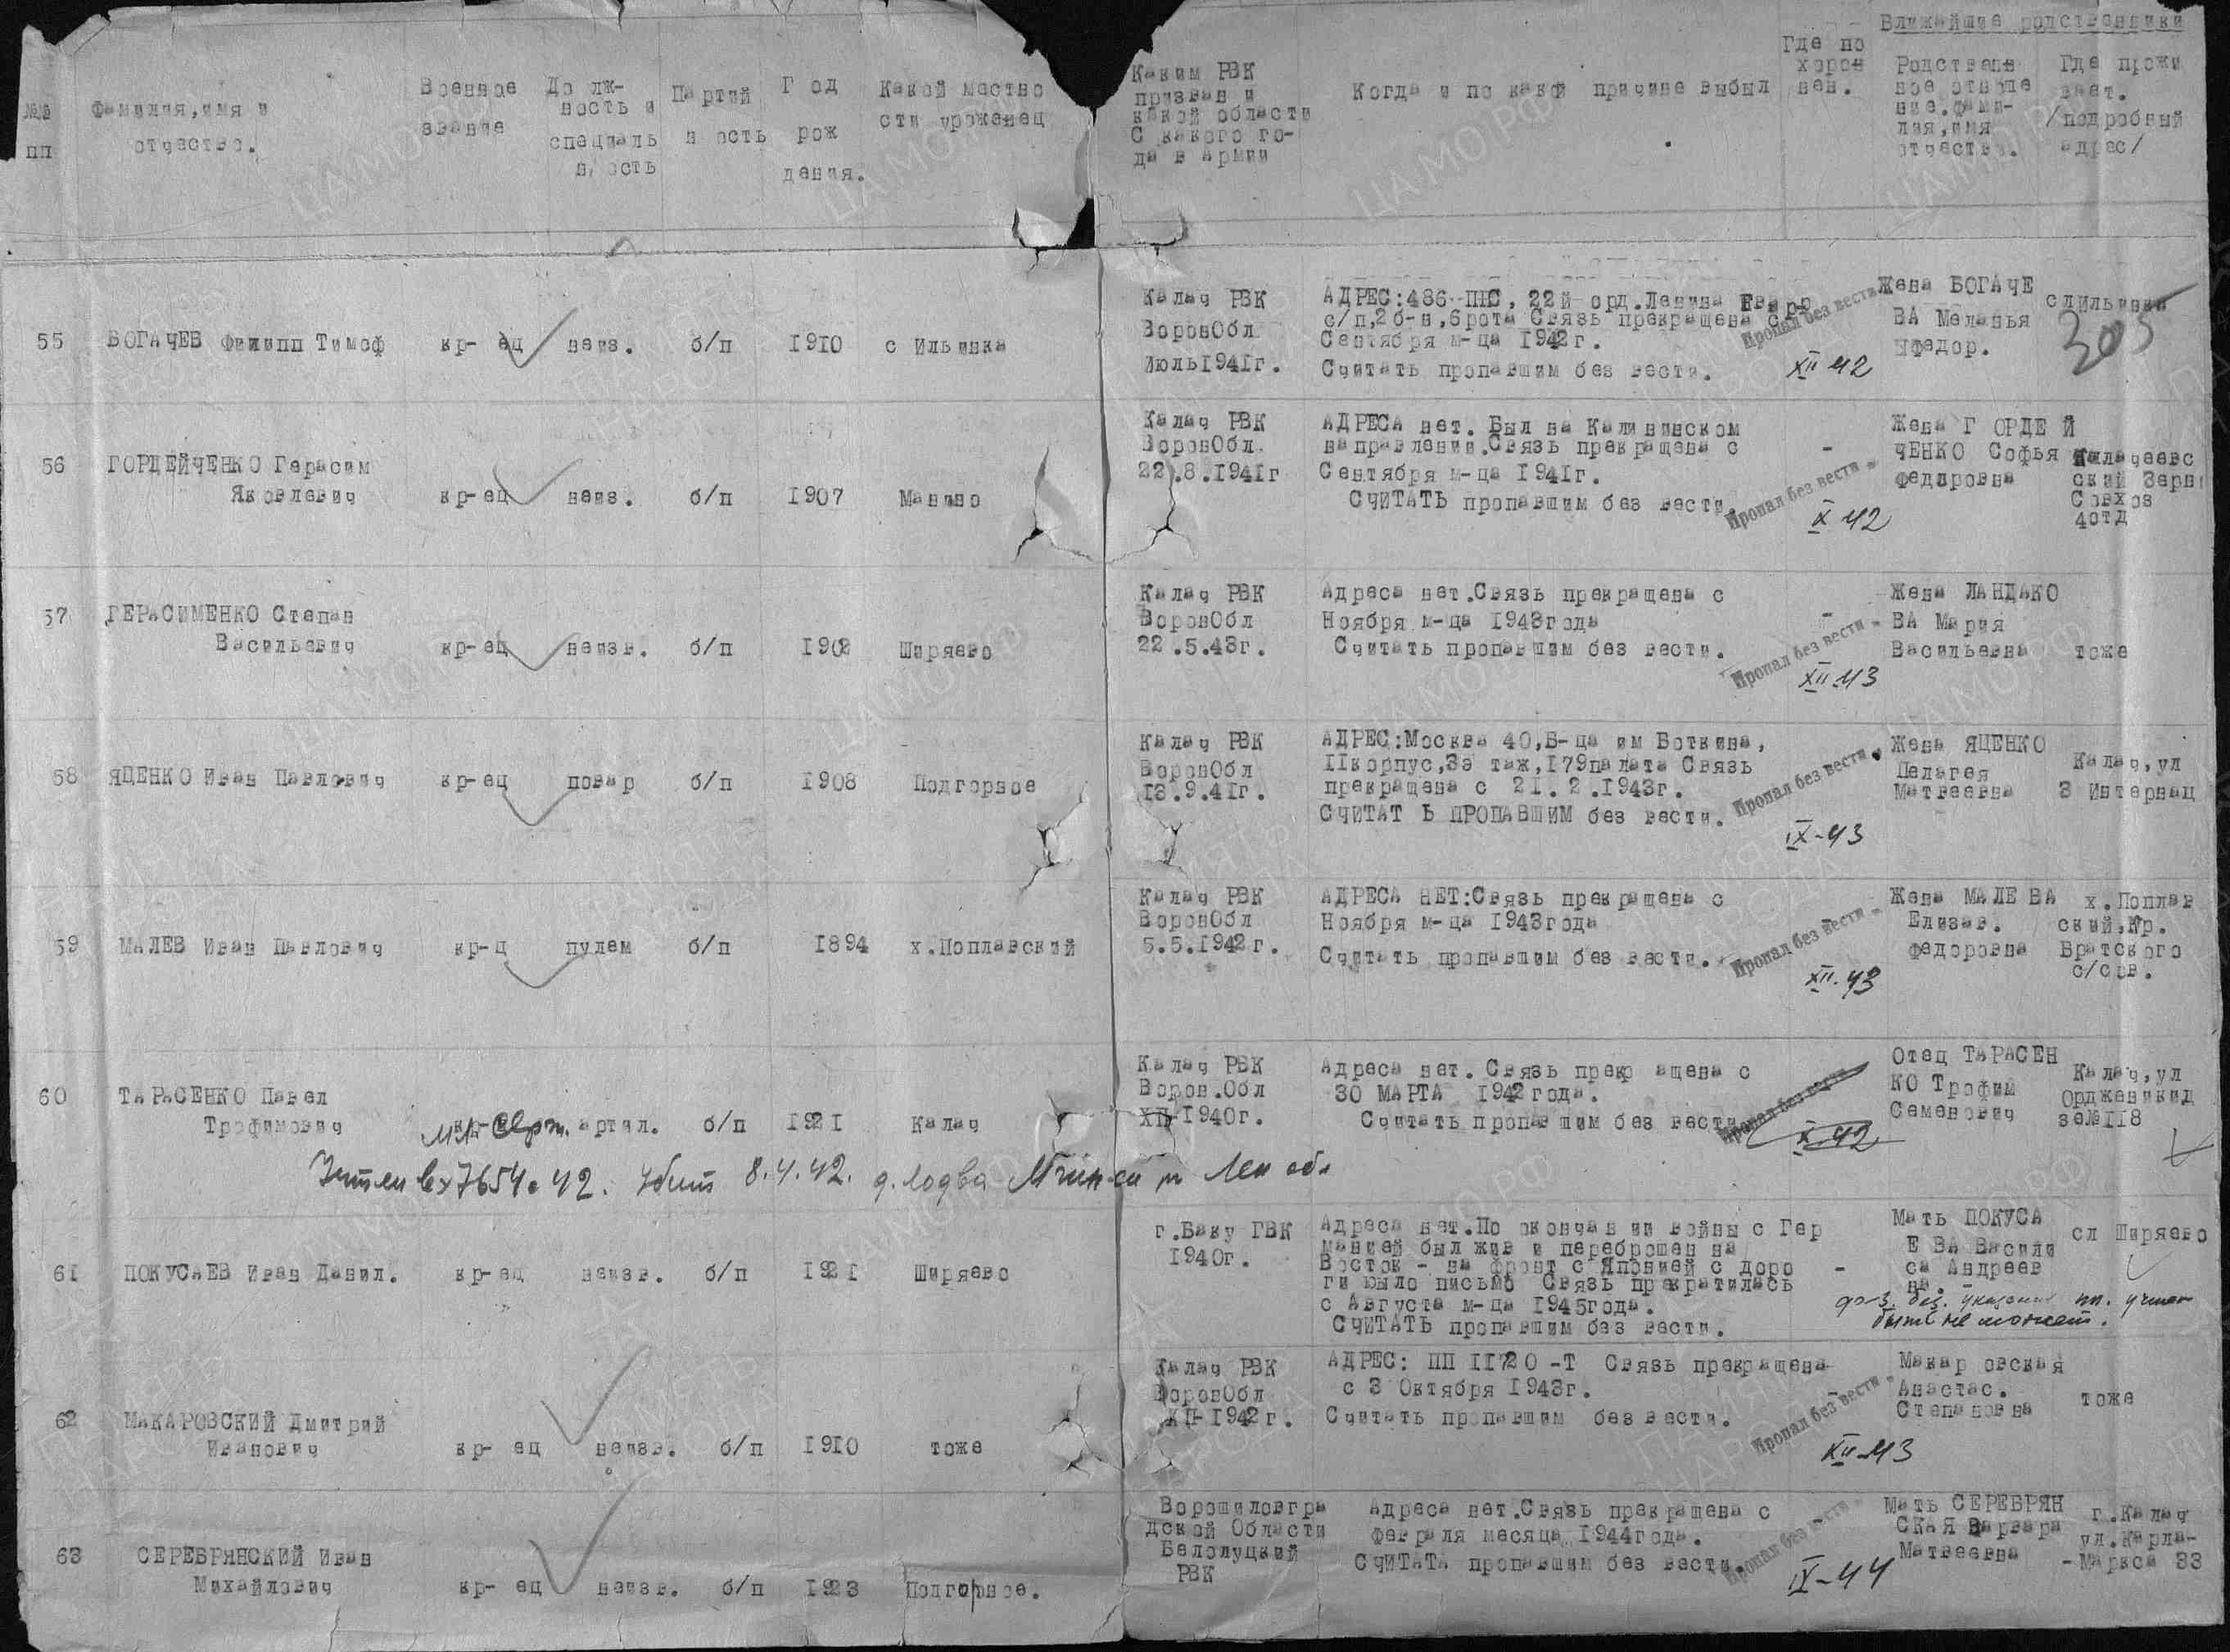 Ближайшие родственники
№№
пп
Фамилия, имя и
отчество.
Военное
звание
Долж-
ность и
специаль
ность
Партий
ность
Год
рож
дения.
Какой местно
сти уроженец
Каким РВК
призван и
какой области
С какого го-
да в Армии
Когда и по какой причине выбыл
Где по
хорон
нен.
Родствен
ное отноше
ние, фами-
лия, имя
отчество.
Где прожи
вает.
/подробный
адрес/
55 БОГАЧЕВ Филипп Тимоф кр-ец неиз. б/п 1910 с Ильинка
Калач РВК
ВоронОбл
Июль 1941г.
АДРЕС:486 ППС, 22й орд.Ленина
с/п,2б-н,6рота Связь прекращена с
Сентября м-ца 1942г.
Считать пропавшим без вести.
Пропал без вести
XII 42
Жена БОГАЧЕ
ВА Меланья
Федор.
с Ильинка
305
56 ГОРДЕЙЧЕНКО Герасим
Яковлевич кр-ец неиз. б/п 1907 Манино
Калач РВК
ВоронОбл.
22.8.1941г
АДРЕСА нет. Был на Калининском
направлении.Связь прекращена с
Сентября м-ца 1941г.
СЧИТАТЬ пропавшим без вести.
-
Пропал без вести
X 42
Жена ГОРДЕЙ
ЧЕНКО Софья
Федоровна
Калачеевс
ский Зерн
Совхоз
4отд
57 ГЕРАСИМЕНКО Степан
Васильевич кр-ец неизв. б/п 1902 Ширяево
Калач РВК
ВоронОбл
22.5.43г.
Адреса нет.Связь прекращена с
Ноября м-ца 1943года
Считать пропавшим без вести.
-
Пропал без вести
XII-43
Жена ЛАНДАКО
ВА Мария
Васильевна
тоже
58 ЯЦЕНКО Иван Павлович кр-ец повар б/п 1908 Подгорное
Калач РВК
ВоронОбл
13.9.41г.
АДРЕС:Москва 40,Б-ца им Боткина,
11корпус,3э таж,179палата Связь
прекращена с 21.2.1943г.
СЧИТАТ Ь ПРОПАВШИМ без вести.
Пропал без вести
IX-43
Жена ЯЦЕНКО
Пелагея
Матвеевна
Калач,ул
3 Интернац
59 МАЛЕВ Иван Павлович кр-ц пулем б/п 1894 х.Поплавский
Калач РВК
ВоронОбл
5.5.1942г.
АДРЕСА НЕТ:Связь прекращена с
Ноября м-ца 1943года
Считать пропавшим без вести.
-
Пропал без вести
XII-43
Жена МАЛЕ ВА
Елизав.
Федоровна
х.Поплав
ский,Кр.
Братского
с/сов.
60 ТАРАСЕНКО Павел
Трофимович мл. серж. артил. б/п 1921 Калач
Калач РВК
Ворон.Обл
XII 1940г.
Адреса нет. Связь прекр ащена с
30 МАРТА 1942года.
Считать пропавшим без вести
Пропал без вести
X-42
Отец ТАРАСЕН
КО Трофим
Семенович
Калач,ул
Орджоникид
зе№118
Учтен вх7654с 42. Убит 8.4.42. д. Лодва Мгинск р Лен обл
61 ПОКУСАЕВ Иван Данил. кр-ец неизв. б/п 1921 Ширяево
г.Баку ГВК
1940г.
Адреса нет.По окончании войны с Гер
манией был жив и переброшен на
Восток - на фронт с Японией с доро
ги было письмо Связь прекратилась
с Августа м-ца 1945года.
СЧИТАТЬ пропавшим без вести.
-
Мать ПОКУСА
Е ВА Васили
са Андреев
на.
сл Ширяево
без. указания пп. учтен
быть не может.
62 МАКАРОВСКИЙ Дмитрий
Иванович кр- ец неизв. б/п 1910 тоже
Калач РВК
ВоронОбл
XII-1942г.
АДРЕС: ПП 11720 -Т Связь прекращена
с 3 Октября 1943г.
Считать пропавшим без вести.
-
Пропал без вести
XII-43
Макар овская
Анастас.
Степановна
тоже
63 СЕРЕБРЯНСКИЙ Иван
Михайлович кр- ец неизв. б/п 1923 Подгорное.
Ворошиловгра
дской Области
Белолуцкий
РВК
Адреса нет.Связь прекращена с
февраля месяца 1944года.
СЧИТАТА пропавшим без вести.
Пропал без вести
IX-44
Мать СЕРЕБРЯН
СКАЯ Варвара
Матвеевна
г.Калач
ул.Карла-
-Маркса 33